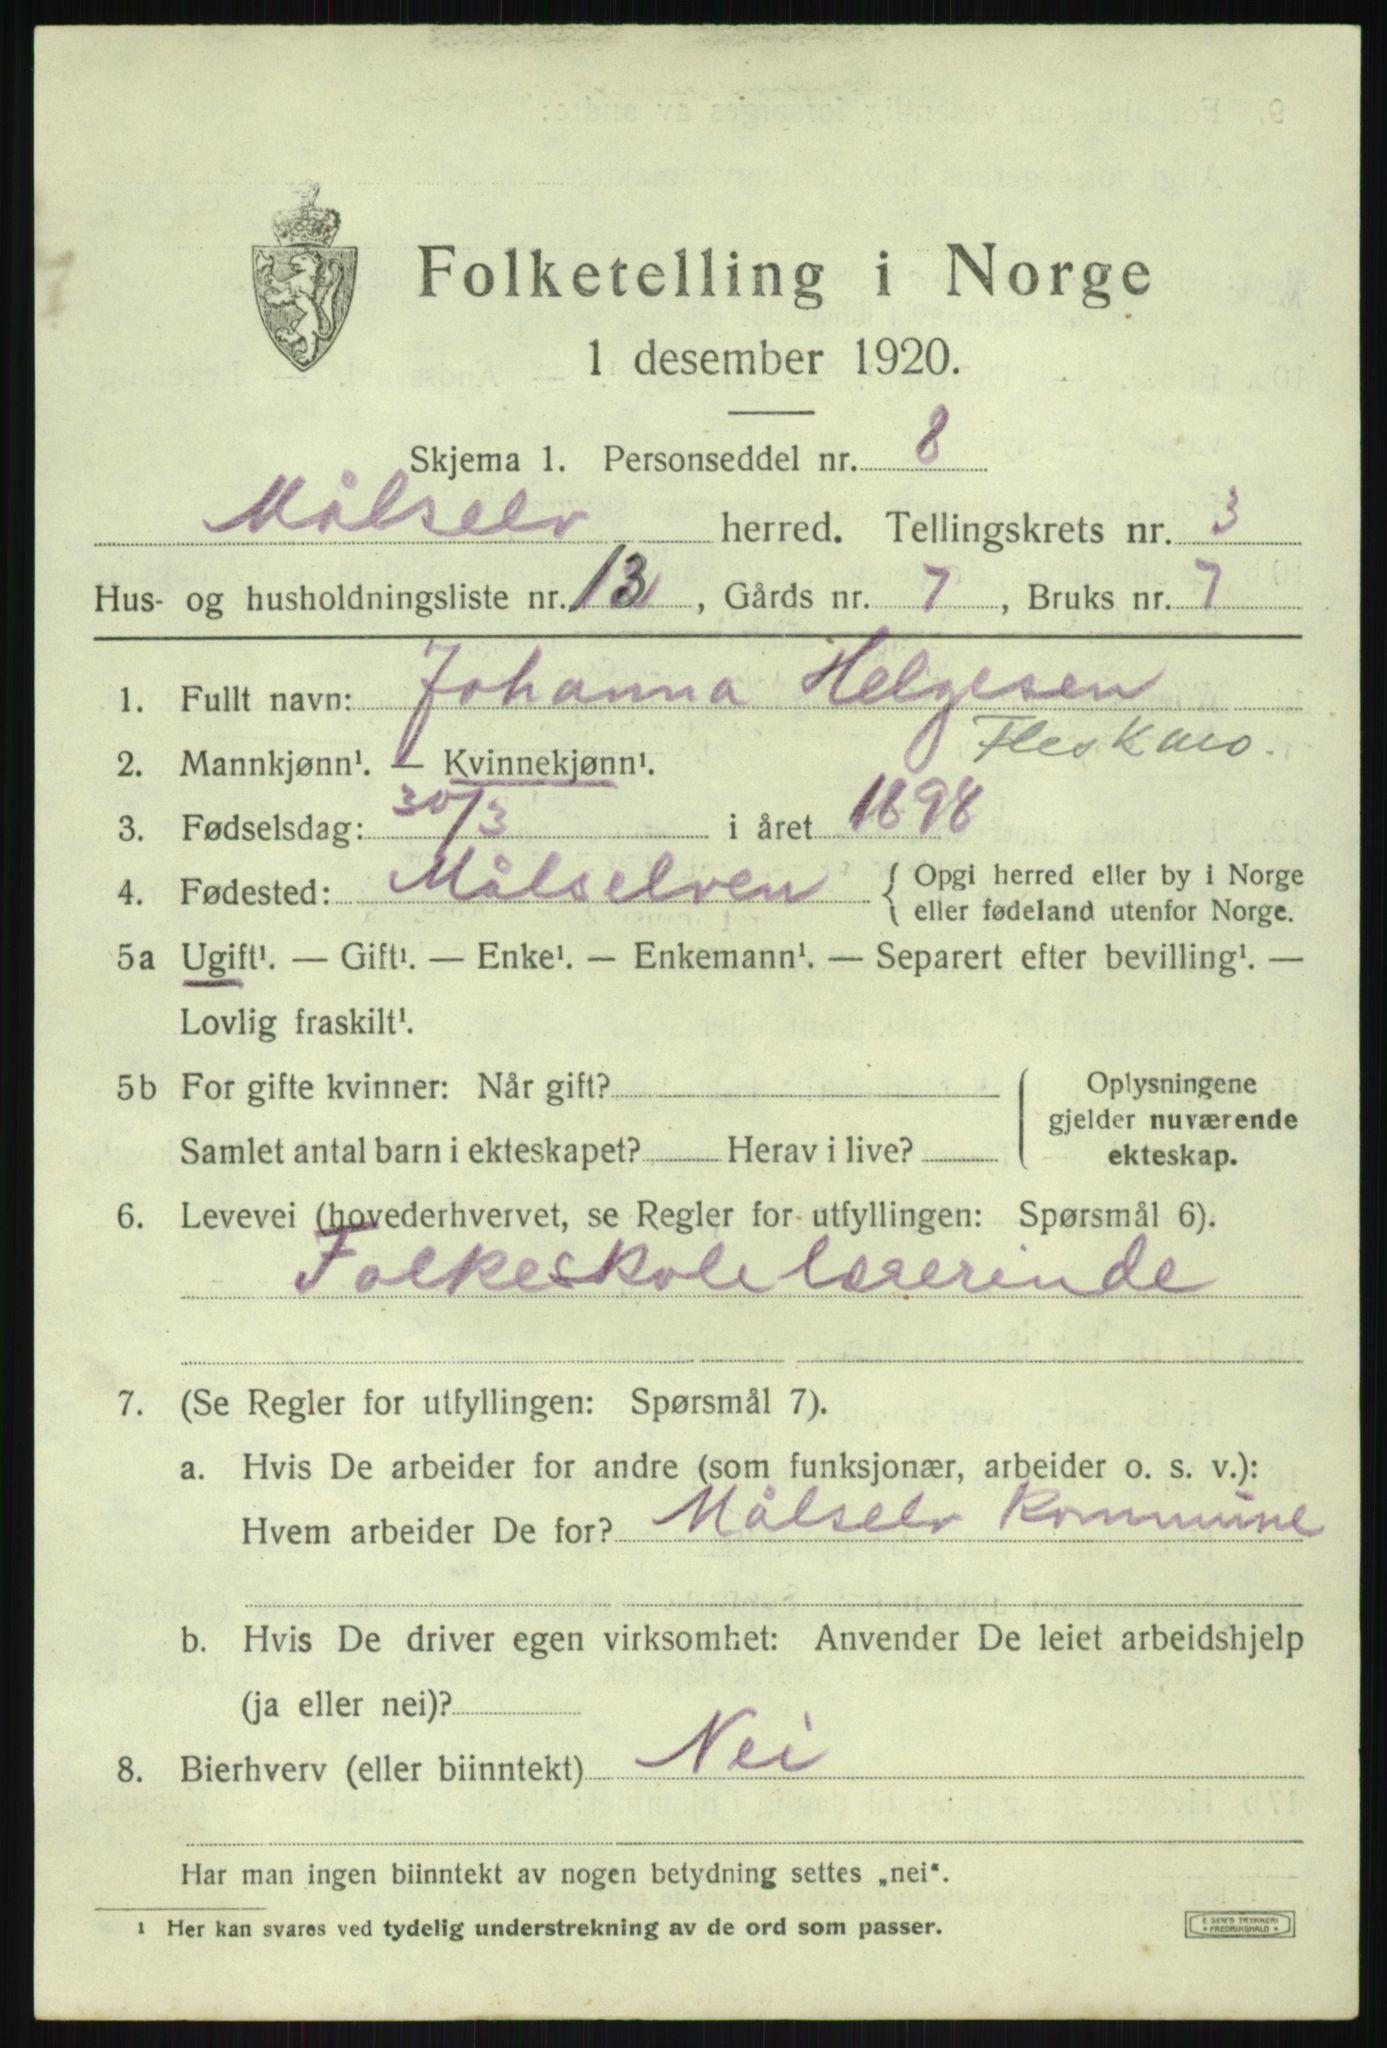 Folketelling i Norge
1 desember 1920.
Skjema 1. Personseddel nr. 8
Målselv herred. Tellingskrets nr. 3
Hus- og husholdningsliste nr. 13, Gårds nr. 7, Bruks nr. 7
1. Fullt navn: Johanna Helgesen
2. Mannkjønn¹. — Kvinnekjønn¹.
3. Fødselsdag: 30/3 i året 1898
4. Fødested: Målselven { Opgi herred eller by i Norge
eller fødeland utenfor Norge.
5a Ugift¹. — Gift¹. — Enke¹. — Enkemann¹. — Separert efter bevilling¹. —
Lovlig fraskilt¹.
5b For gifte kvinner: Når gift? Oplysningene
gjelder nuværende
Samlet antal barn i ekteskapet? Herav i live? ekteskap.
6. Levevei (hovederhvervet, se Regler for utfyllingen: Spørsmål 6).
Folkeskolelærerinde
7. (Se Regler for utfyllingen: Spørsmål 7).
a. Hvis De arbeider for andre (som funksjonær, arbeider o. s. v.):
Hvem arbeider De for? Målselv kommune
b. Hvis De driver egen virksomhet: Anvender De leiet arbeidshjelp
(ja eller nei)?
8. Bierhverv (eller biinntekt) Nei
Har man ingen biinntekt av nogen betydning settes „nei“.
¹ Her kan svares ved tydelig understrekning av de ord som passer.
E. SEM'S TRYKKERI
• FREDRIKSHALD •